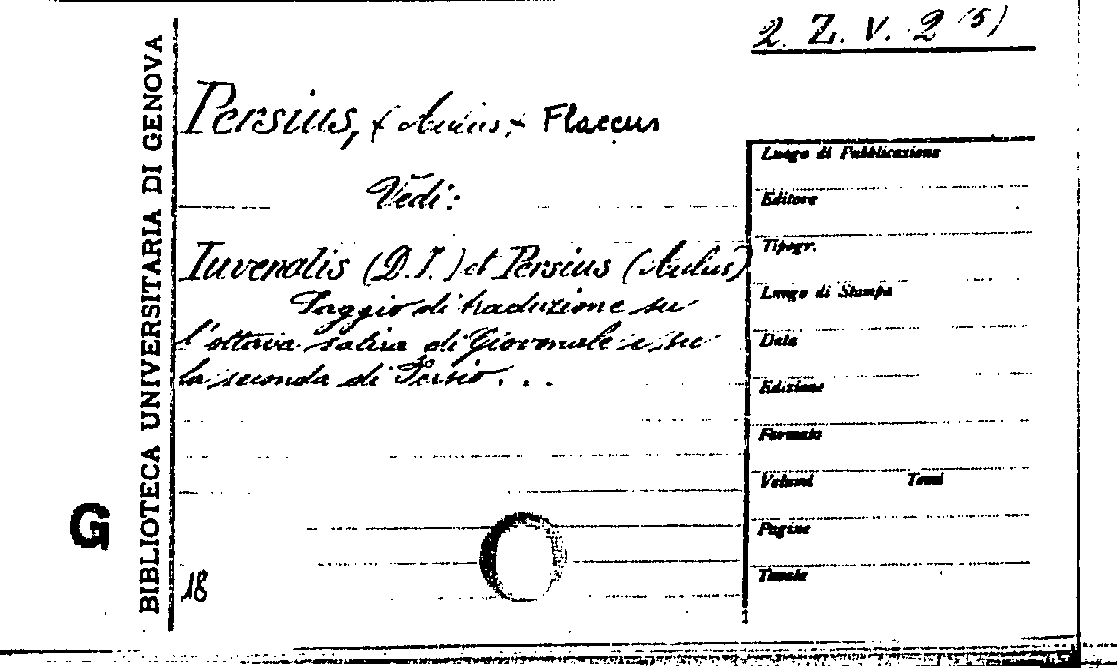 2. Z. V. 2 (5)
BIBLIOTECA UNIVERSITARIA DI GENOVA
Persius, (Aulus) Flaccus
Vedi:
Iuvenalis (D. I.) et Persius (Aulus)
Saggio di traduzione su
l'ottava satira di Giovenale e su
la seconda di Persio...
G
18
Luogo di Pubblicazione
Editore
Tipogr.
Luogo di Stampa
Data
Edizione
Formato
Volumi Tomi
Pagine
Tavole